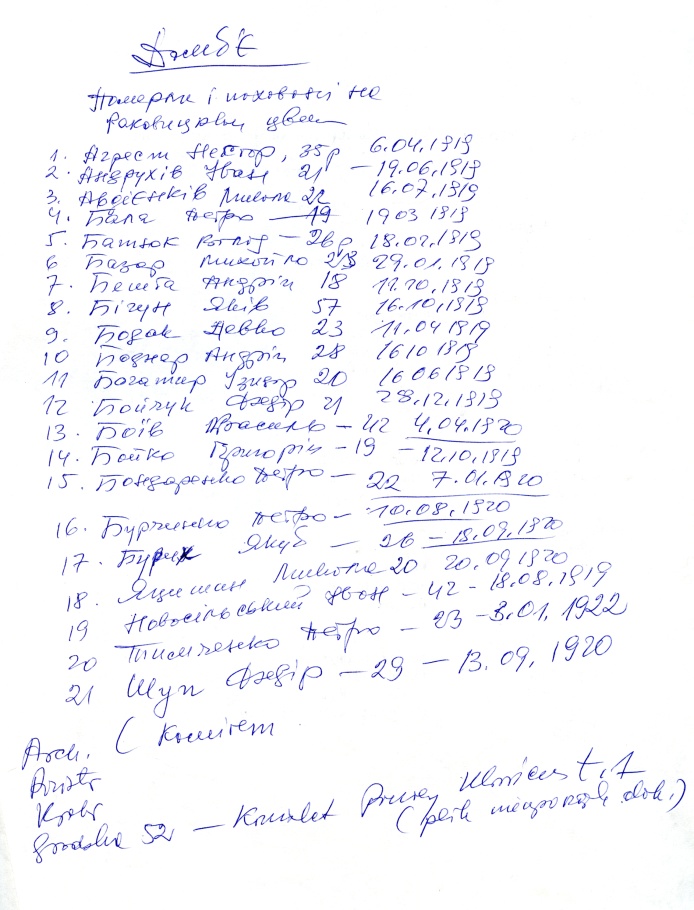 Домбє
Померли і поховані на
Раковицькому цвен
1. Агрест Нестор, 35р 6.04.1919
2. Андрухів Іван 21 – 19.06.1919
3. Авдієнків Микола 22 16.07.1919
4. Бала Петро – 19 19 03 1919
5. Батюк – 26р 18.02.1919
6 Базар Михайло 23 29.01.1919
7. Бешта Андрій 18 1919
8. Бігун Яків 57 16.10.1919
9. Бодак Левко 23 11.04 1919
10 Боднар Андрій 28 16 10 1919
11 Богатир 20 16 06 1919
12 Бойчук Федір 21 28.12.1919
13. Боїв Василь – 42 4.04.1920
14. Бойко Григорій – 19 – 12.10.1919
15. Бондаренко Петро – 22 7.01.1920
16. Бурченко Петро – 10.08.1920
17. Бурих Якуб – 26 – 18.09.1920
18. Яцишан Микола 20 20.09 1920
19 Новосільський Іван – 42 – 18.08.1919
20 Тимченко Петро – 23 – 3.01.1922
21 Шуп Федір – 29 – 13.09.1920
Arch. ( Комітет
Grodzka 52 – Komitet Pomocy t. 1
( dok.)